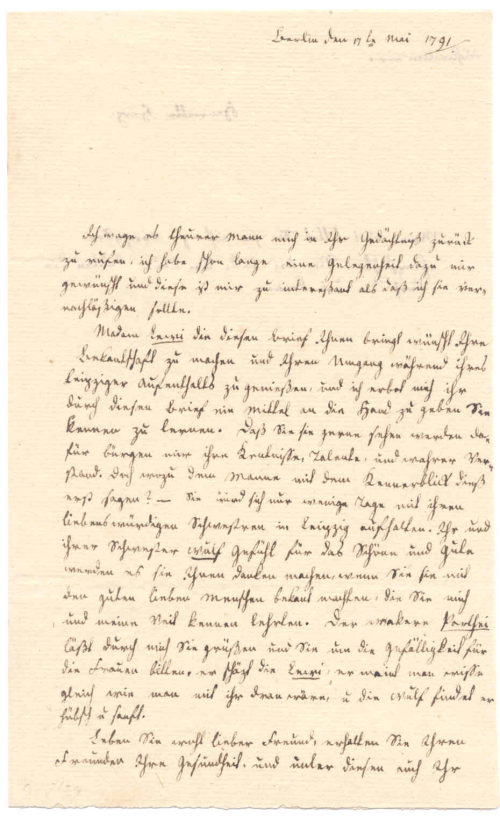 Berlin den 17t Mai 1791
Ich wage es theurer Mann mich in Ihr Gedächtniß zurück
zu rufen, ich habe schon lange eine Gelegenheit dazu mir
gewünscht und diese ist mir zu interessant als daß ich sie ver-
nachläßigen sollte.
Madam Levi die diesen Brief Ihnen bringt wünscht Ihre
Bekantschaft zu machen und Ihren Umgang während ihres
Leipziger Aufenthalts zu genießen, und ich erbot mich ihr
durch diesen Brief ein Mittel an die Hand zu geben Sie
kennen zu lernen. Daß Sie sie gerne sehen werden da-
für bürgen mir ihre Kentnisse, Talente, und wahrer Ver-
stand. Doch wozu dem Manne mit dem Kennerblick dieß
erst sagen? — Sie wird sich nur wenige Tage mit ihren
liebenswürdigen Schwestren in Leipzig aufhalten. Ihr und
ihrer Schwester Wulf Gefühl für das Schöne und Gute
werden es sie Ihnen danken machen, wenn Sie sie mit
den guten lieben Menschen bekant machten, die Sie mich
und meine Veit kennen lehrten. Der wakere Parthei
läßt durch mich Sie grüßen und Sie um die Gefälligkeit für
die Frauen bitten, er schäzt die Levi, er meint man wisse
gleich wie man mit ihr dran wäre, u die Wulf findet er
hübsch u sanft.
Leben Sie wohl lieber Freund, erhalten Sie Ihren
Freunden Ihre Gesundheit, und unter diesen auch Ihr